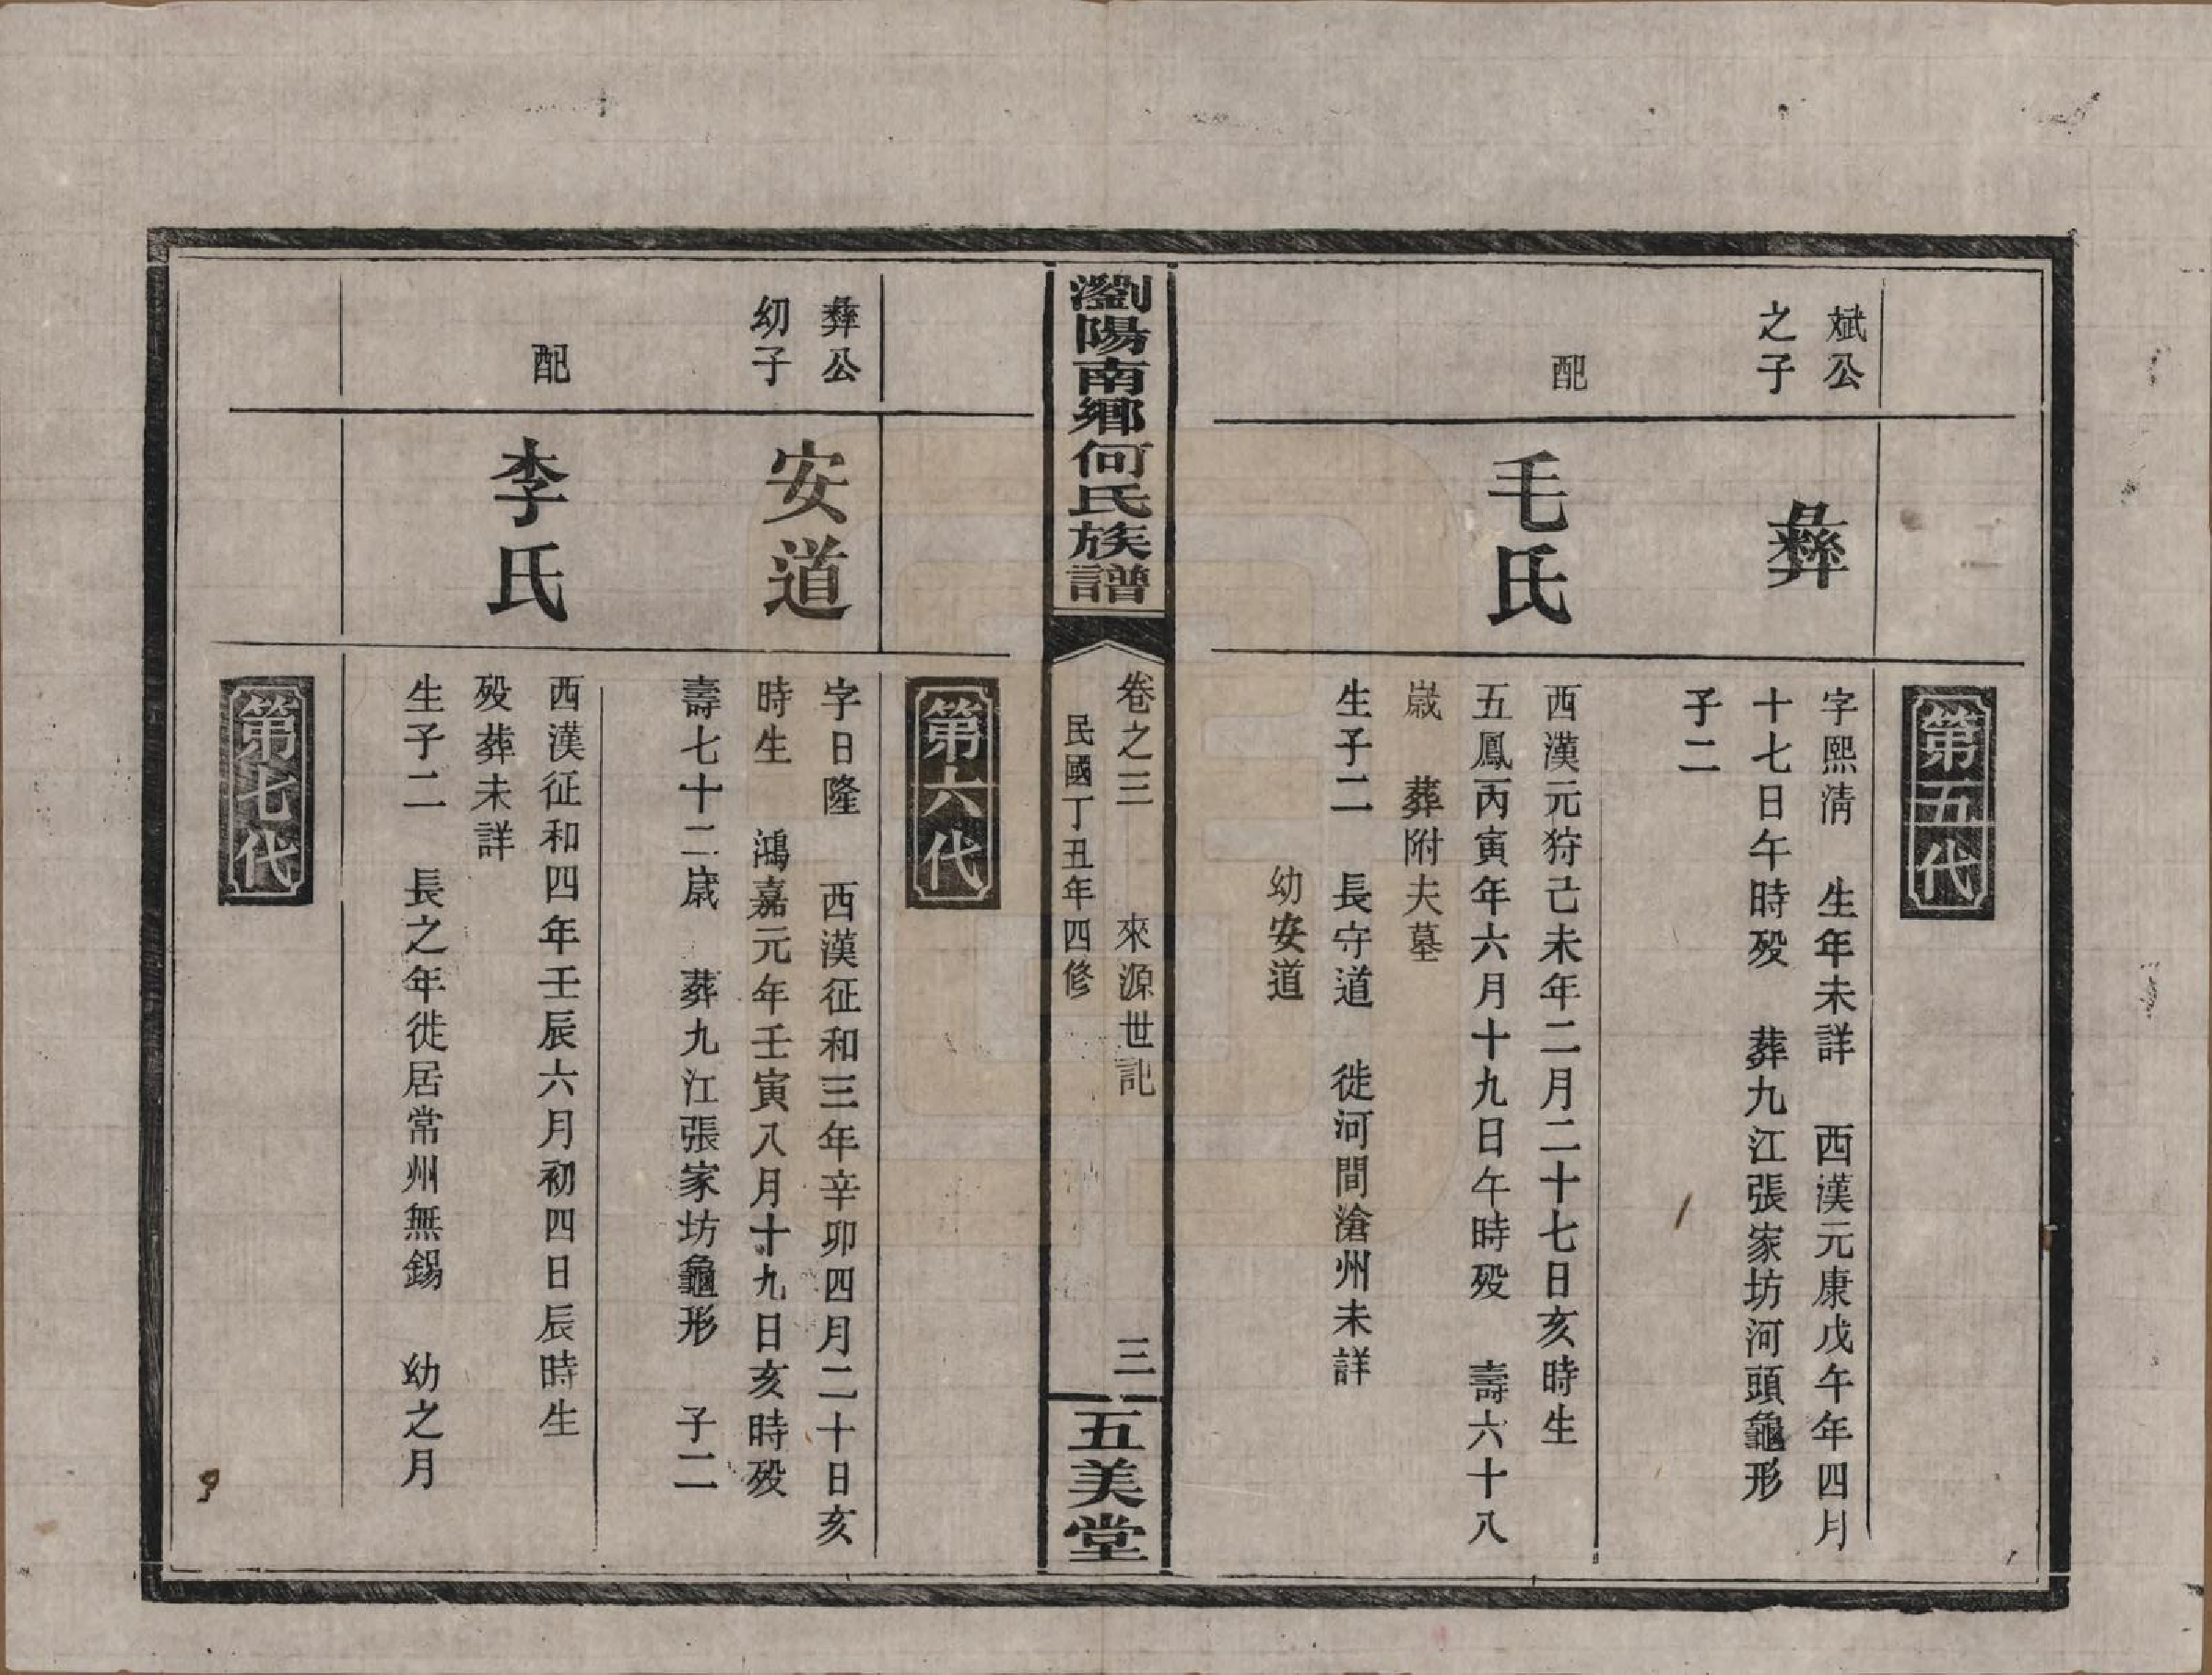 第五代
斌公
之子
彝
字熙淸　生年未詳　西漢元康戊午年四月
十七日午時歿　葬九江張家坊河頭龜形
子二
配
毛氏
西漢元狩己未年二月二十七日亥時生
五鳳丙寅年六月十九日午時歿　壽六十八
歲　葬附夫墓
生子二　長守道　徙河間滄州未詳
幼安道
瀏陽南鄉何氏族譜
卷之三　來源世記　三
民國丁丑年四修
五美堂
第六代
彝公
幼子
安道
字日隆　西漢征和三年辛卯四月二十日亥
時生　鴻嘉元年壬寅八月十九日亥時歿
壽七十二歲　葬九江張家坊龜形　子二
配
李氏
西漢征和四年壬辰六月初四日辰時生
歿葬未詳
生子二　長之年徙居常州無錫　幼之月
第七代